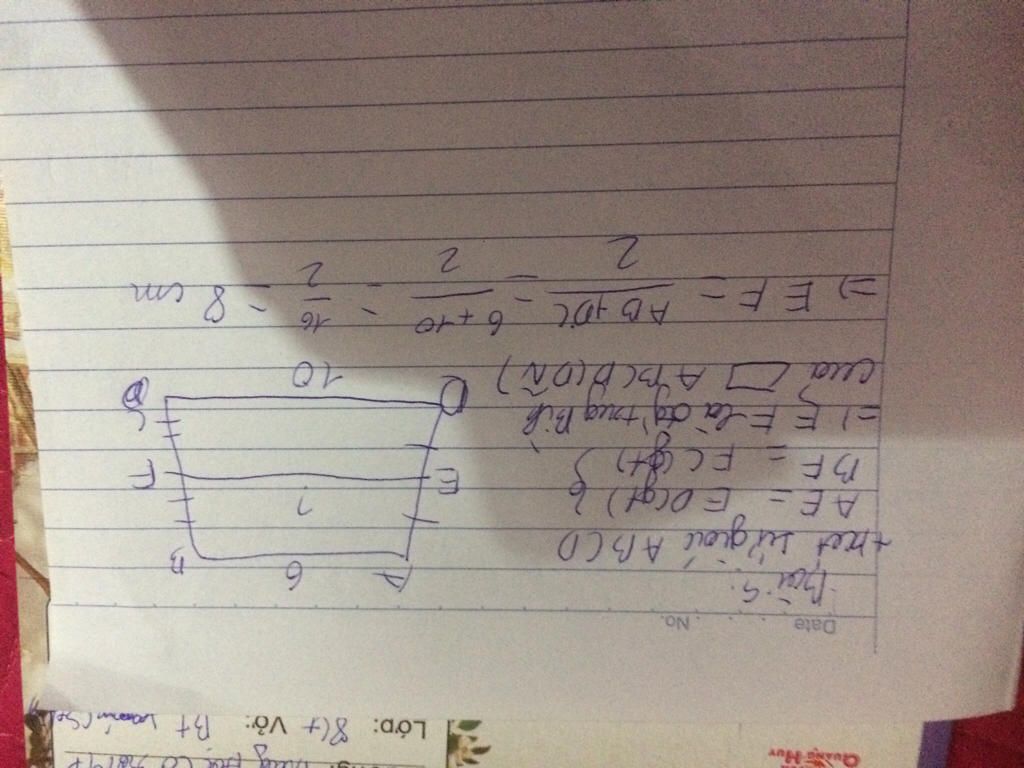 QUANG HUY
Lớp: 8 Vở: Bt
Date No.
Bài 5:
+ Xét tứ giác ABCD
AE = ED (gt) }
BF = FC (gt) }
=) EF là đg trung Bình
của ABCD (ĐN)
=) EF = AB + DC / 2 = 6 + 10 / 2 = 16 / 2 = 8 cm
A 6 B
E ? F
D 10